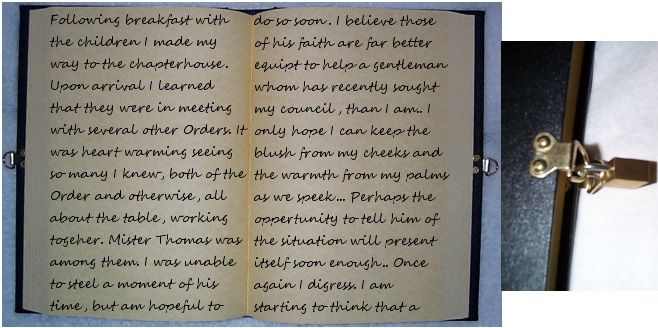 Following breakfast with
the children I made my
way to the chapterhouse.
Upon arrival I learned
that they were in meeting
with several other Orders. It
was heart warming seeing
so many I knew, both of the
Order and otherwise, all
about the table, working
togeher. Mister Thomas was
among them. I was unable
to steel a moment of his
time, but am hopeful to
do so soon. I believe those
of his faith are far better
equipt to help a gentleman
whom has recently sought
my council, than I am.. I
only hope I can keep the
blush from my cheeks and
the warmth from my palms
as we speek... Perhaps the
opportunity to tell him of
the situation will present
itself soon enough.. Once
again I digress. I am
starting to think that a